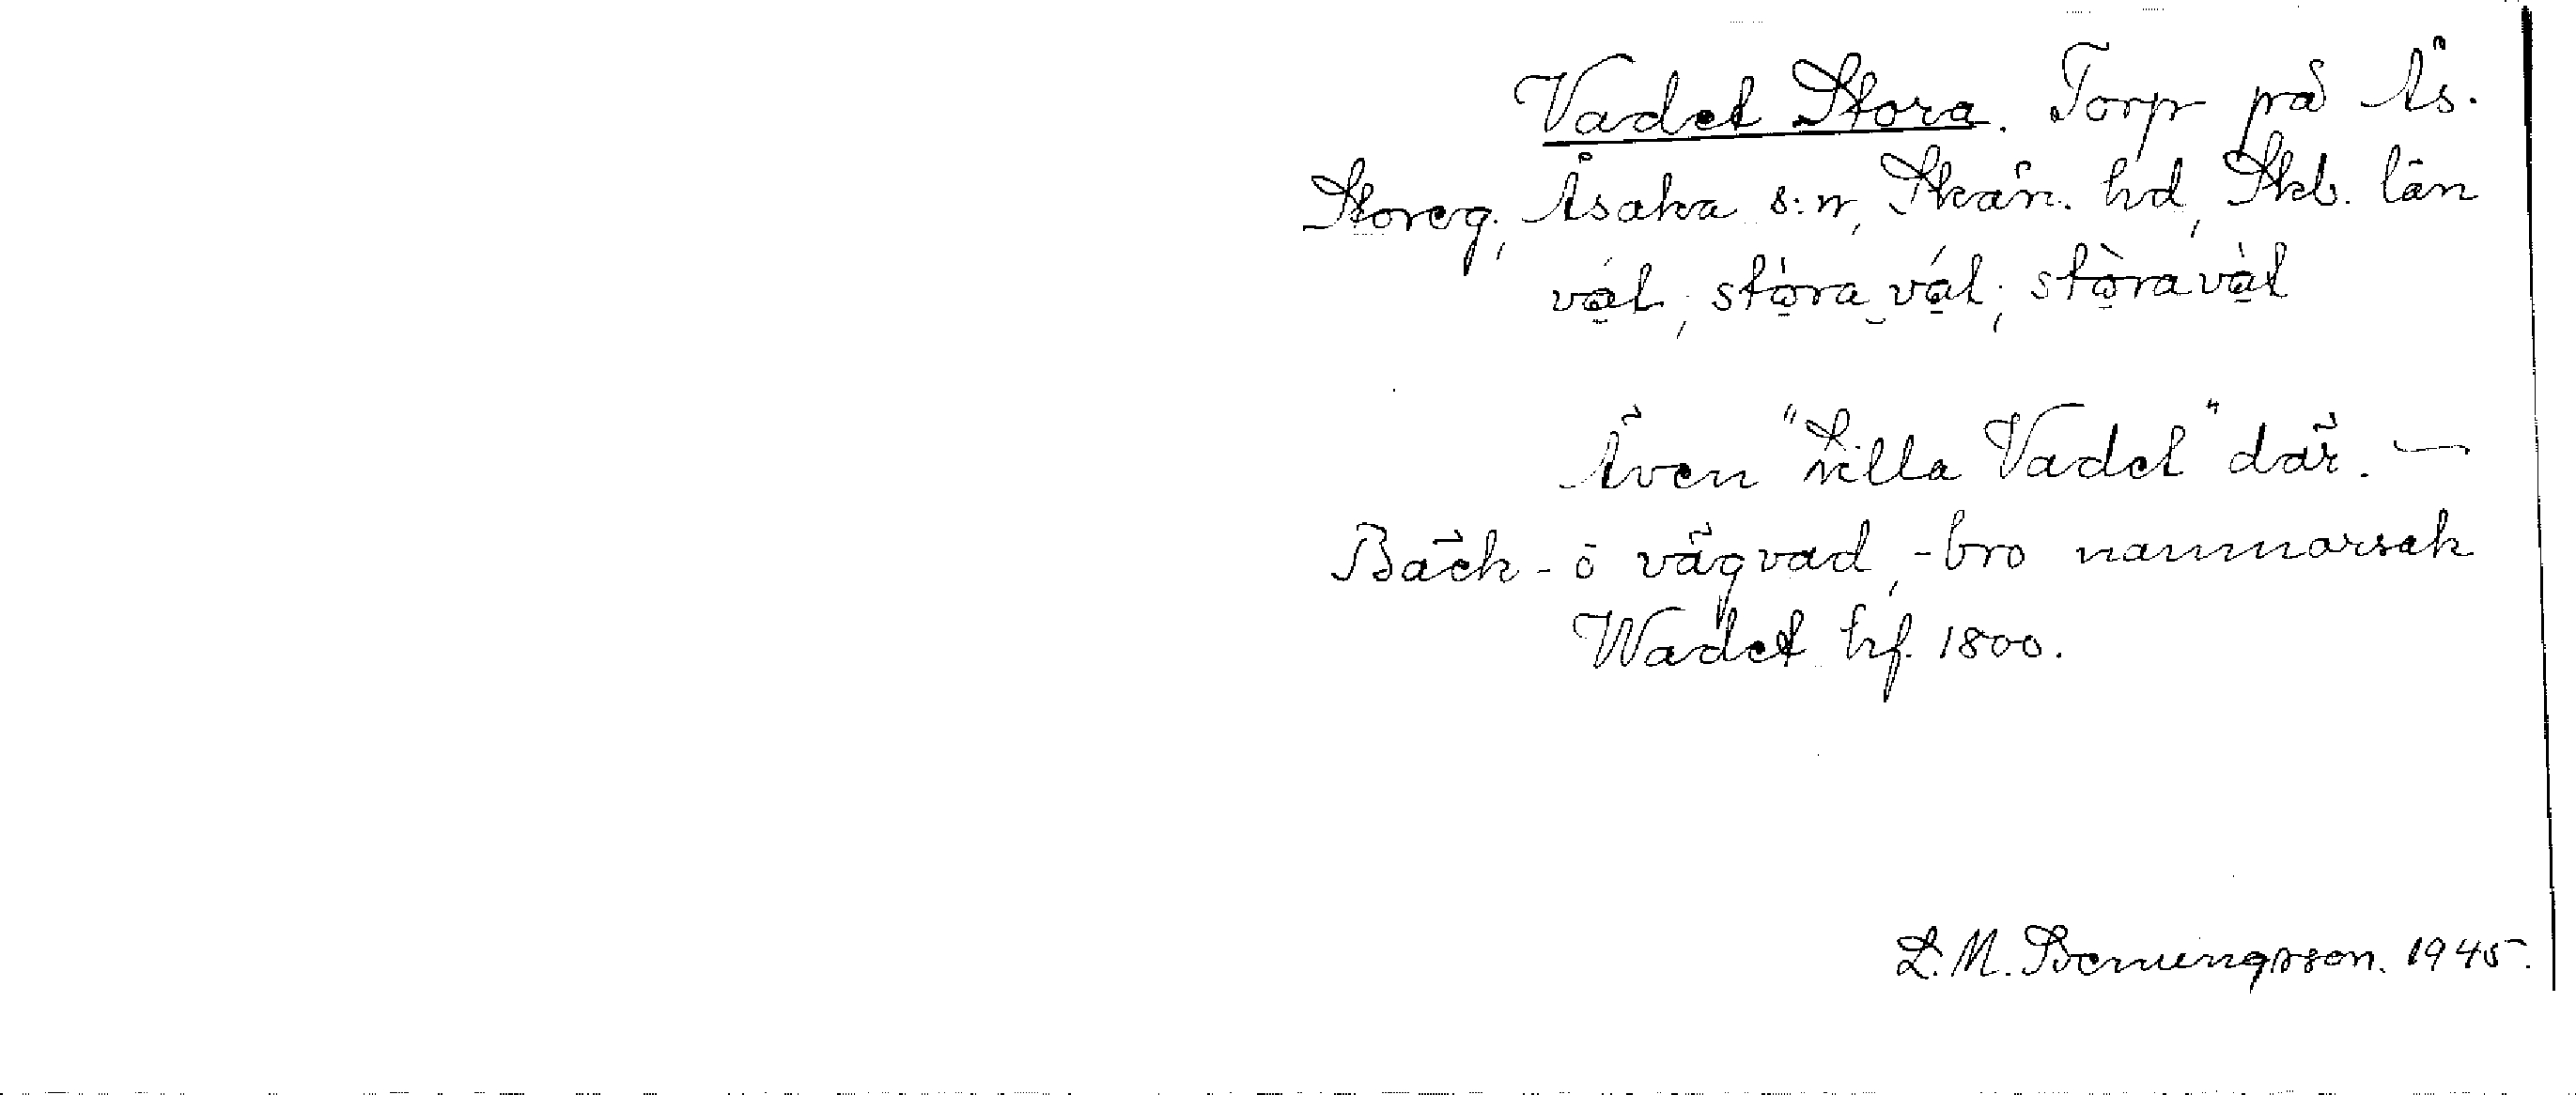 Vadet Stora. Torp på Ås.
Storeg., Åsaka s:n, Skån. hd, Skb. län
vat, stora vat, stora vat
Även "Lilla Vadet" där. —
Bäck- o vägvad, -bro namnorsak
Wadet hf. 1800.
L. M. Svenungsson. 1945.